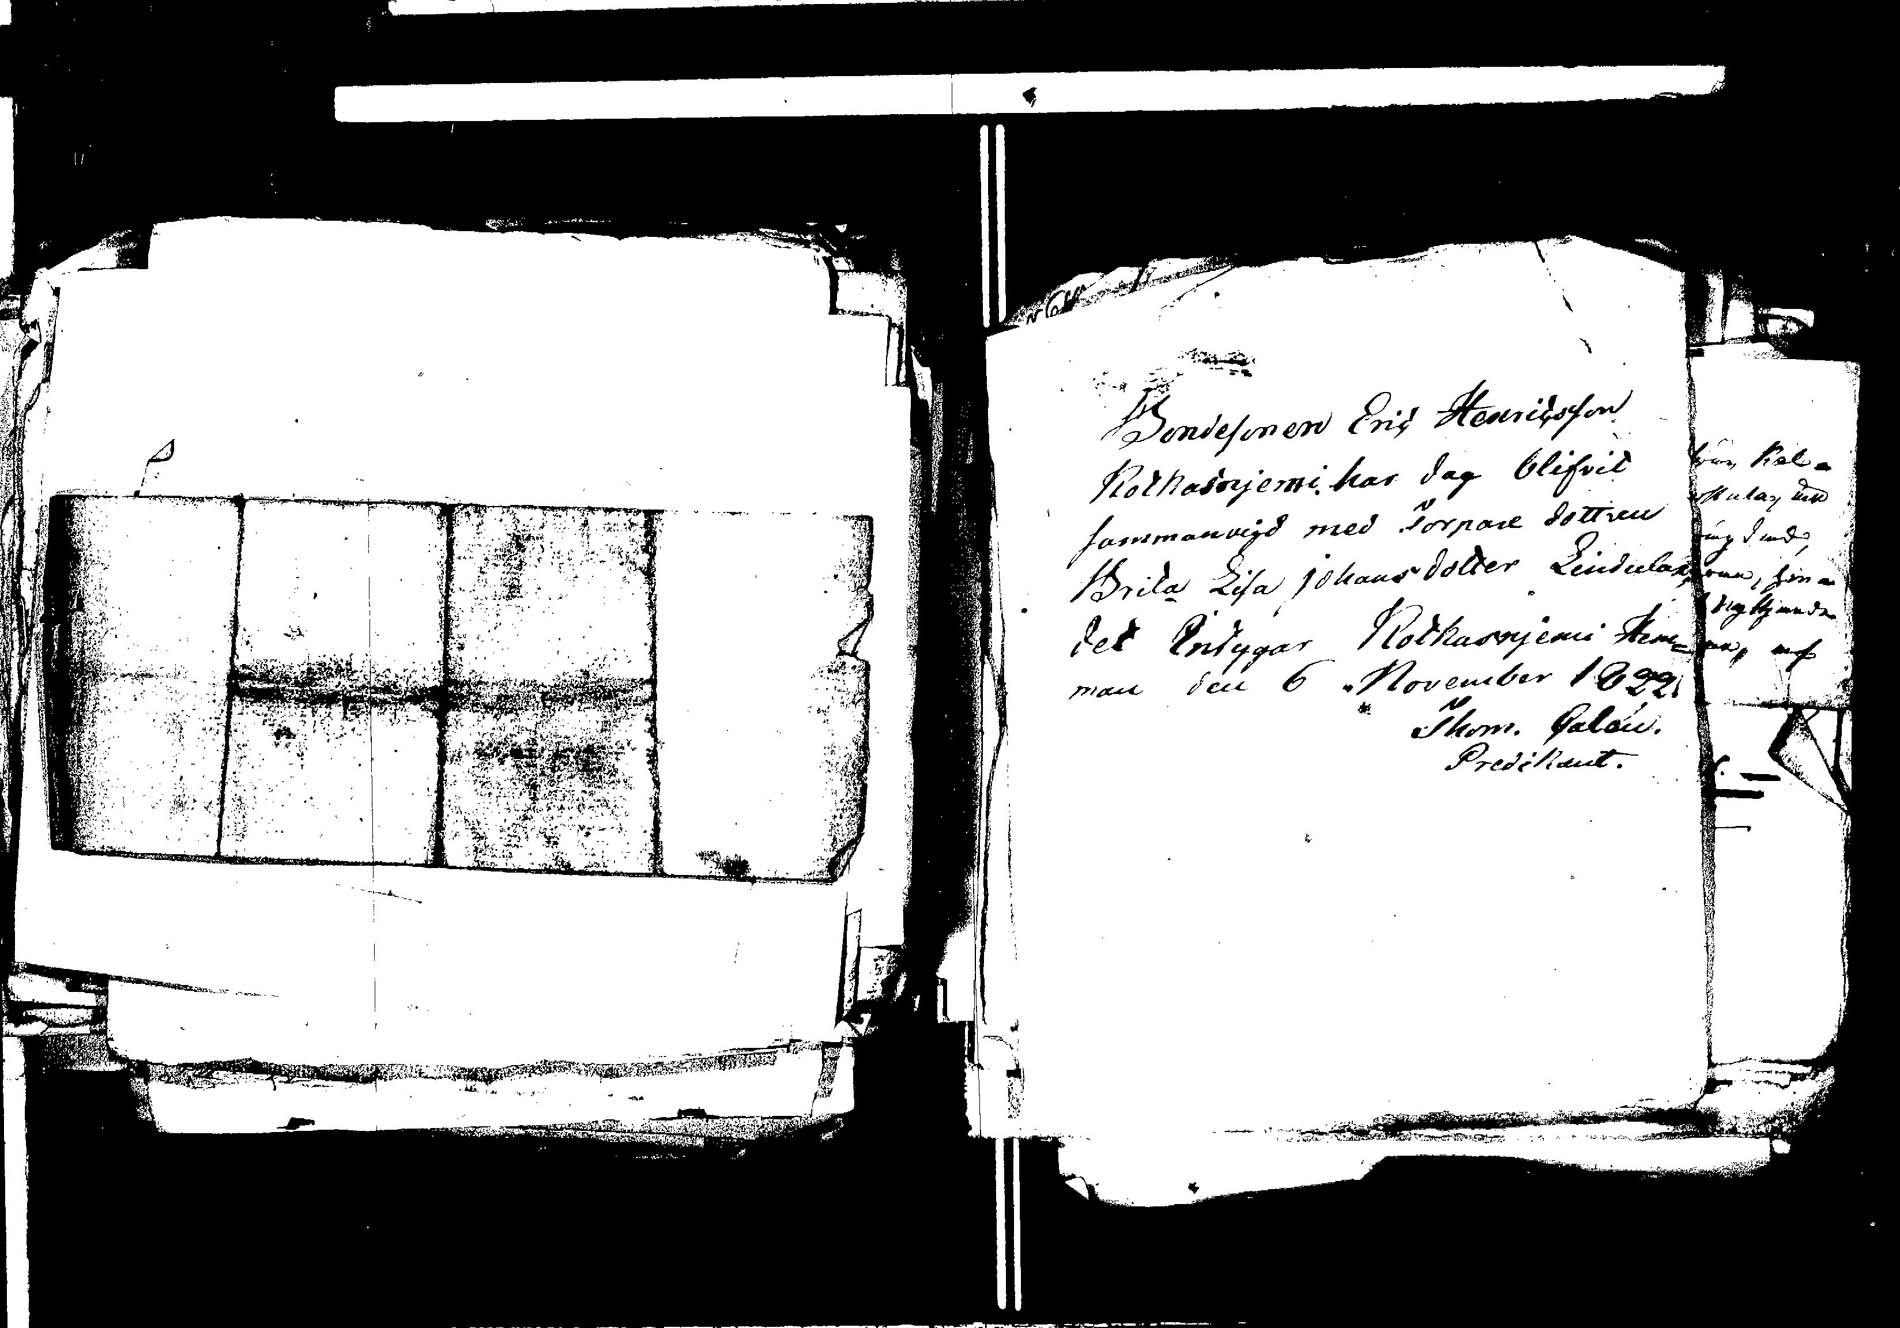 Bondesonen Eric Henricsson
Kotkasnjemi har dag blifvit
sammanvigd med Torpare dottren
Brita Lisa Johansdotter Lindulas
det Intygar Kotkasnjemi Hem=
man den 6 November 1822
Thom. Galén.
Predikant.